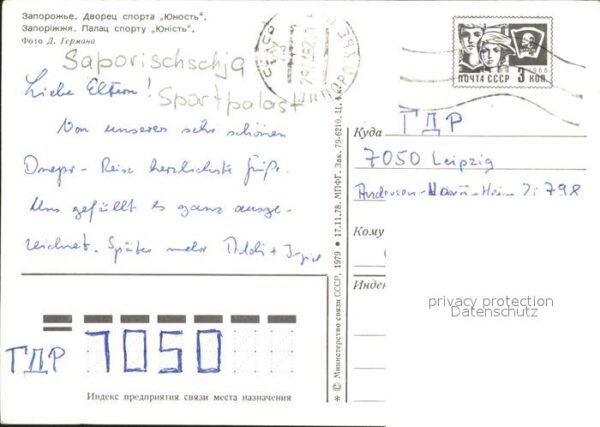 Запорожье. Дворец спорта „Юность".
Запоріжжя. Палац спорту „Юність".
Фото Д. Германа
Saporischschja
Sportpalast
Liebe Eltern!
Von unserer sehr schönen
Dnepr-Reise herzlichste Grüße.
Uns gefällt es ganz ausge-
zeichnet. Später mehr
СССР
ЗАПОРОЖЬЕ
1966
ПОЧТА СССР 3 КОП.
Куда ГДР
7050 Leipzig
798
Кому
Индекс
* © Министерство связи СССР, 1979 ● 17.11.78. МПФГ. Зак. 79-6210. Ц. 4 к.
ГДР 7050
Индекс предприятия связи места назначения
privacy protection
Datenschutz